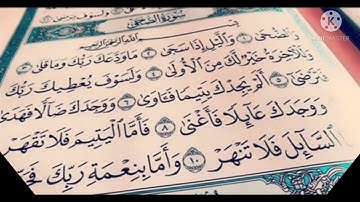 وَلَسَوْفَ يَرْضَىٰ
سُورَةُ الضُّحَىٰ
بِسْمِ اللَّهِ الرَّحْمَٰنِ الرَّحِيمِ
وَالضُّحَىٰ ١ وَاللَّيْلِ إِذَا سَجَىٰ ٢ مَا وَدَّعَكَ رَبُّكَ وَمَا قَلَىٰ ٣
وَلَلْآخِرَةُ خَيْرٌ لَّكَ مِنَ الْأُولَىٰ ٤ وَلَسَوْفَ يُعْطِيكَ رَبُّكَ
فَتَرْضَىٰ ٥ أَلَمْ يَجِدْكَ يَتِيمًا فَآوَىٰ ٦ وَوَجَدَكَ ضَالًّا فَهَدَىٰ
وَوَجَدَكَ عَائِلًا فَأَغْنَىٰ ٨ فَأَمَّا الْيَتِيمَ فَلَا تَقْهَرْ
السَّائِلَ فَلَا تَنْهَرْ ١٠ وَأَمَّا بِنِعْمَةِ رَبِّكَ
KINEMASTER